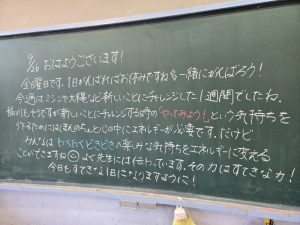 9/26 おはようございます!
金曜日です。1日がんばればお休みですね♪一緒にがんばろう!
今週はミシンや太縄など新しいことにチャレンジした1週間でしたね。
もそうですが新しいことにチャレンジする時の"やってみよう!"という気持ちを
作るためにはほんのちょっと心の中にエネルギーが必要です。だけど
みんなはわくわくどきどきの楽しみな気持ちをエネルギーに変える
ことができますね☺よく先生には伝わっています。その力はすてきな力!
今日もすてきな1日になりますように!